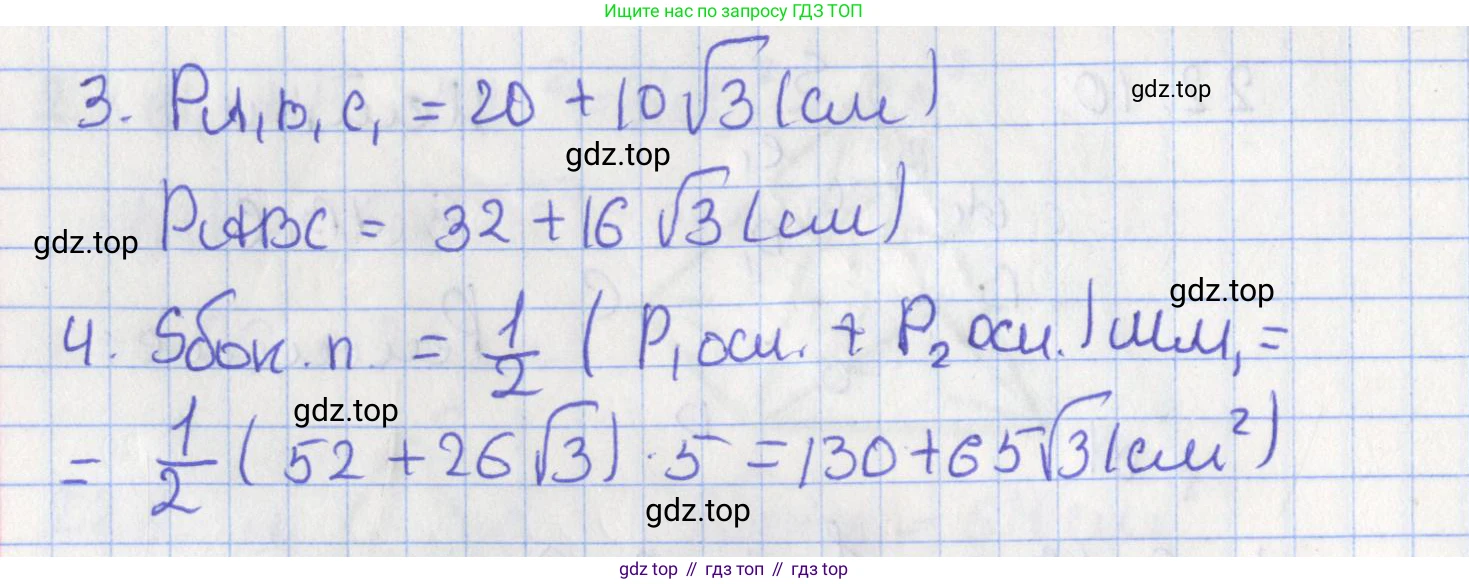 Ищите нас по запросу ГДЗ ТОП
3. PA₁B₁C₁ = 20 + 10√3 (см)
gdz.top
gdz.top
PABC = 32 + 16√3 (см)
gdz.top
gdz.top
4. Sбок. п. = 1/2 (P₁осн. + P₂осн.) MM₁ =
gdz.top
= 1/2 (52 + 26√3) · 5 = 130 + 65√3 (см²)
gdz.top
gdz top // гдз топ // gdz top